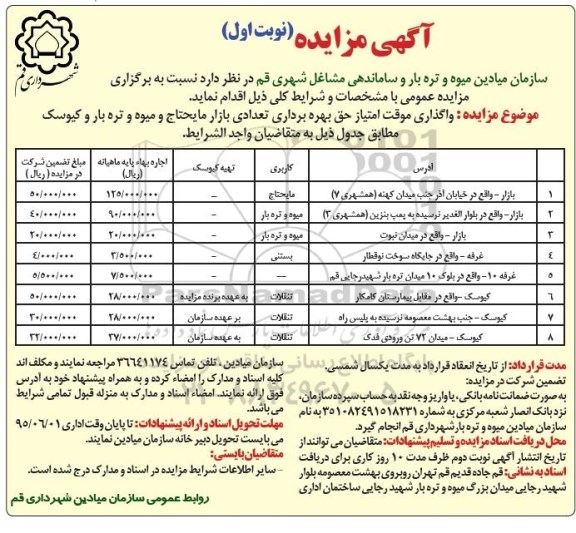 آگهی مزایده (نوبت اول)
شهرداری قم
سازمان میادین میوه و تره بار و ساماندهی مشاغل شهری قم در نظر دارد نسبت به برگزاری
مزایده عمومی با مشخصات و شرایط کلی ذیل اقدام نماید.
موضوع مزایده : واگذاری موقت امتیاز حق بهره برداری تعدادی بازار مایحتاج و میوه و تره بار و کیوسک
مطابق جدول ذیل به متقاضیان واجد الشرایط.
آدرس کاربری تهیه کیوسک اجاره بهاء پایه ماهیانه (ریال) مبلغ تضمین شرکت در مزایده ( ریال )
۱ بازار - واقع در خیابان آذر جنب میدان کهنه (همشهری ۷) مایحتاج - ۱۲۵/۰۰۰/۰۰۰ ۵۰/۰۰۰/۰۰۰
۲ بازار- واقع در بلوار الغدیر نرسیده به پمپ بنزین (همشهری ۳) میوه و تره بار - ۹۰/۰۰۰/۰۰۰ ۴۰/۰۰۰/۰۰۰
۳ بازار - واقع در میدان نبوت میوه و تره بار - ۲۰/۰۰۰/۰۰۰ ۲۰/۰۰۰/۰۰۰
۴ غرفه - واقع در جایگاه سوخت نوقطار بستنی - ۳/۵۰۰/۰۰۰ ۴/۰۰۰/۰۰۰
۵ غرفه ۱۰- واقع در بلوک ۱۰ میدان تره بار شهیدرجایی قم --- - ۷/۵۰۰/۰۰۰ ۵/۵۰۰/۰۰۰
۶ کیوسک -واقع در مقابل بیمارستان کامکار تنقلات به عهده برنده مزایده ۲۸/۰۰۰/۰۰۰ ۵۰/۰۰۰/۰۰۰
۷ کیوسک - جنب بهشت معصومه نرسیده به پلیس راه تنقلات بر عهده سازمان ۲۸/۰۰۰/۰۰۰ ۳۰/۰۰۰/۰۰۰
۸ کیوسک - میدان ۷۲ تن ورودی فدک تنقلات به عهده سازمان ۲۷/۰۰۰/۰۰۰ ۳۲/۰۰۰/۰۰۰
مدت قرارداد: از تاریخ انعقاد قرارداد به مدت یکسال شمسی.
تضمین شرکت در مزایده:
به صورت ضمانت نامه بانکی، یا واریز وجه نقد به حساب سپرده سازمان،
نزد بانک انصار شعبه مرکزی به شماره ۳۵۱۰۸۲۴۹۱۵۱۸۲۳۱ به نام
سازمان میادین میوه و تره بار شهرداری قم انجام گیرد.
محل دریافت اسناد مزایده و تسلیم پیشنهادات: متقاضیان می توانند از
تاریخ انتشار آگهی نوبت دوم ظرف مدت ۱۰ روز کاری برای دریافت
اسناد به نشانی: قم جاده قدیم قم تهران روبروی بهشت معصومه بلوار
شهید رجایی میدان بزرگ میوه و تره بار شهید رجایی ساختمان اداری
سازمان میادین ، تلفن تماس ۳۶۶۴۱۱۷۴ مراجعه نمایند و مکلف اند
کلیه اسناد و مدارک را امضاء کرده و به همراه پیشنهاد خود به آدرس
فوق ارائه نمایند. امضاء اسناد و مدارک به منزله قبول تمامی شرایط
می باشد.
مهلت تحویل اسناد و ارائه پیشنهادات : تا پایان وقت اداری ۹۵/۰۶/۰۱
می بایست تحویل دبیر خانه سازمان میادین نمایند.
متقاضیان بایستی :
- سایر اطلاعات شرایط مزایده در اسناد و مدارک درج شده است.
روابط عمومی سازمان میادین شهرداری قم